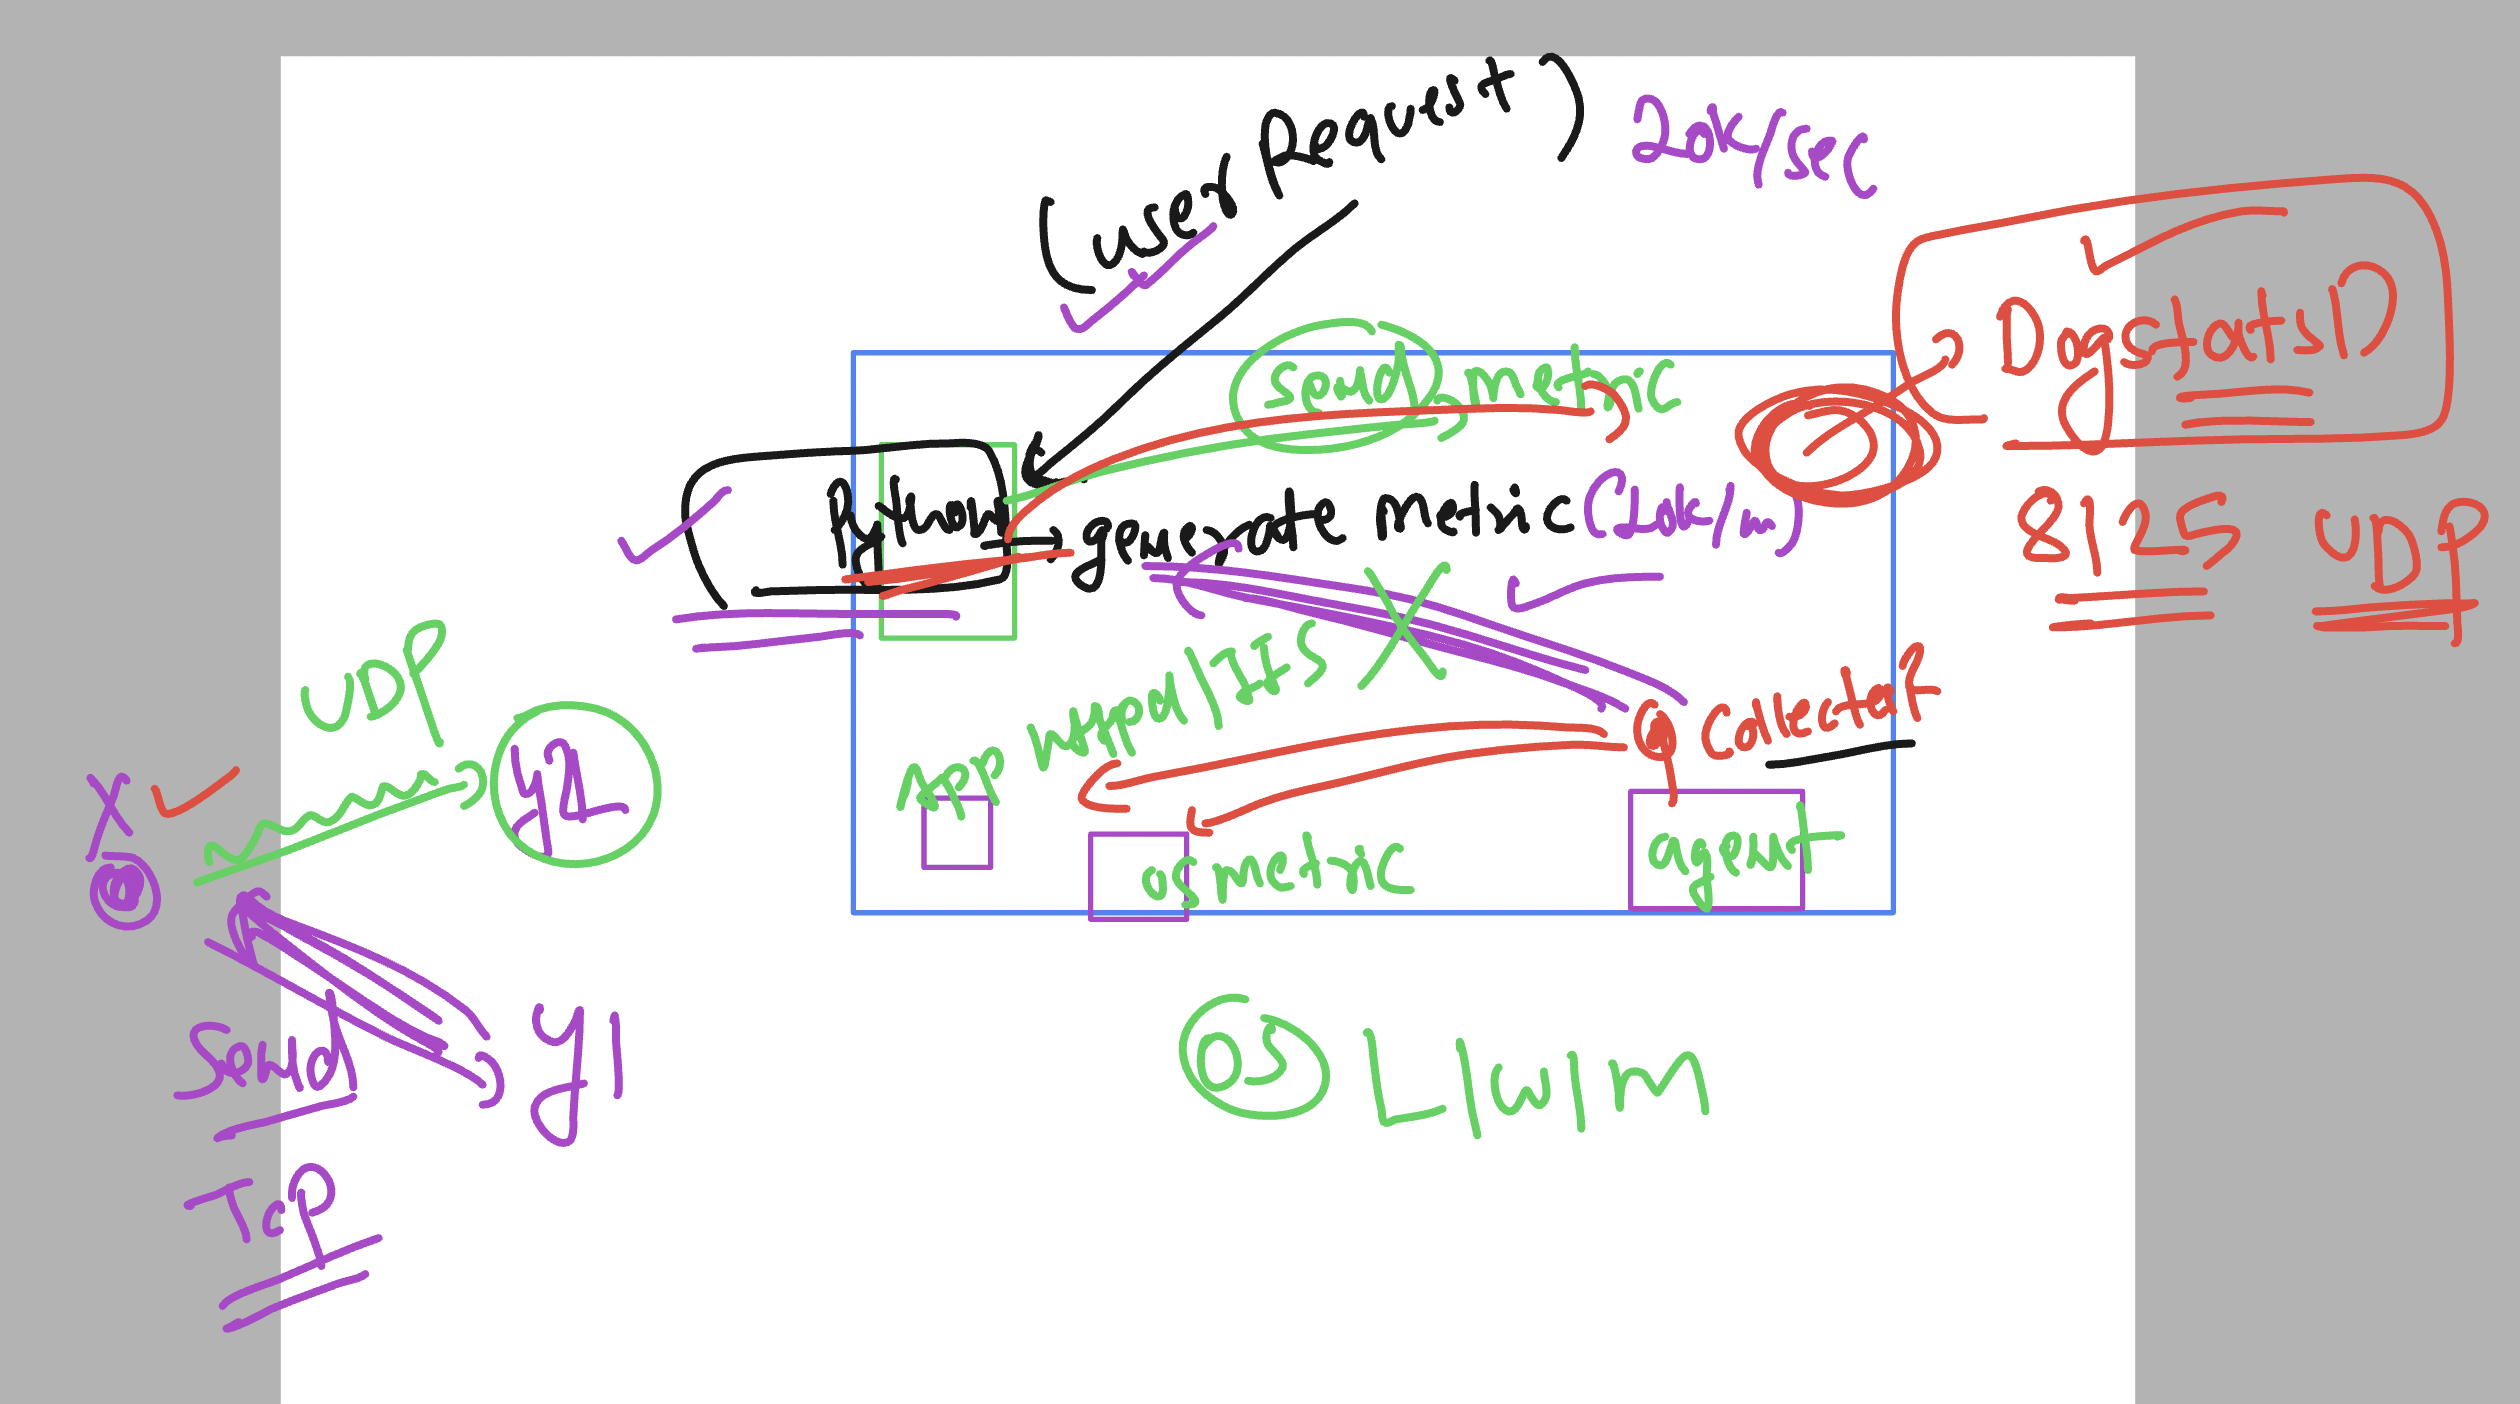 (user Request) 20K/sec
DogstatsD
send metric
python generate metric (20K/m)
8125 UDP
UDP
App
Collector
y2
os metric
agent
Send
y1
OS L/W/M
TCP